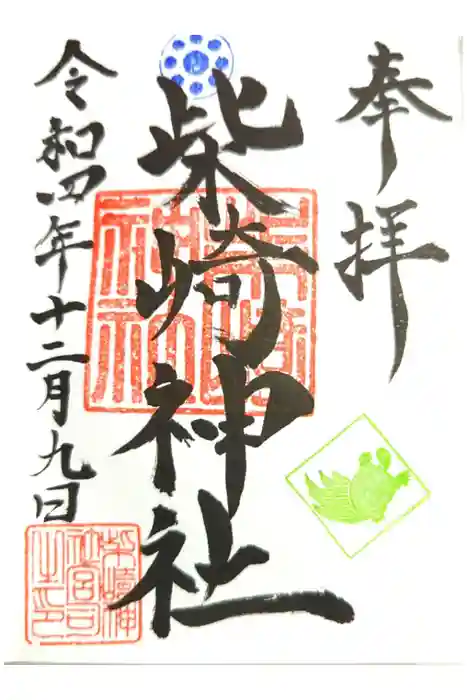 奉拝
柴崎神社
令和四年十二月九日
柴崎神
社宮司
之印